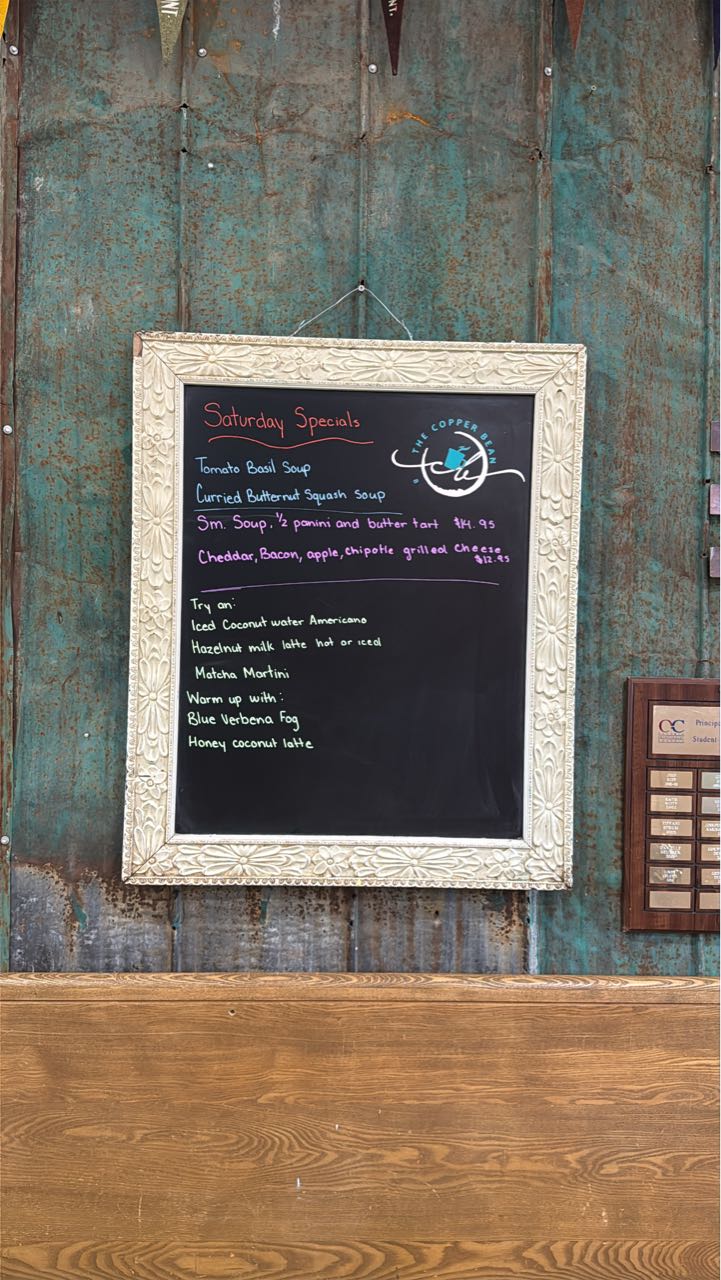 INI
NT.
Saturday Specials
THE COPPER BEAN
cu
Tomato Basil Soup
Curried Butternut Squash Soup
Sm. Soup, 1/2 panini and butter tart $14.95
Cheddar, Bacon, apple, chipotle grilled cheese
$12.95
Try an:
Iced Coconut water Americano
Hazelnut milk latte hot or iced
Matcha Martini
Warm up with:
Blue Verbena Fog
Honey coconut latte
OC
Princip
Student